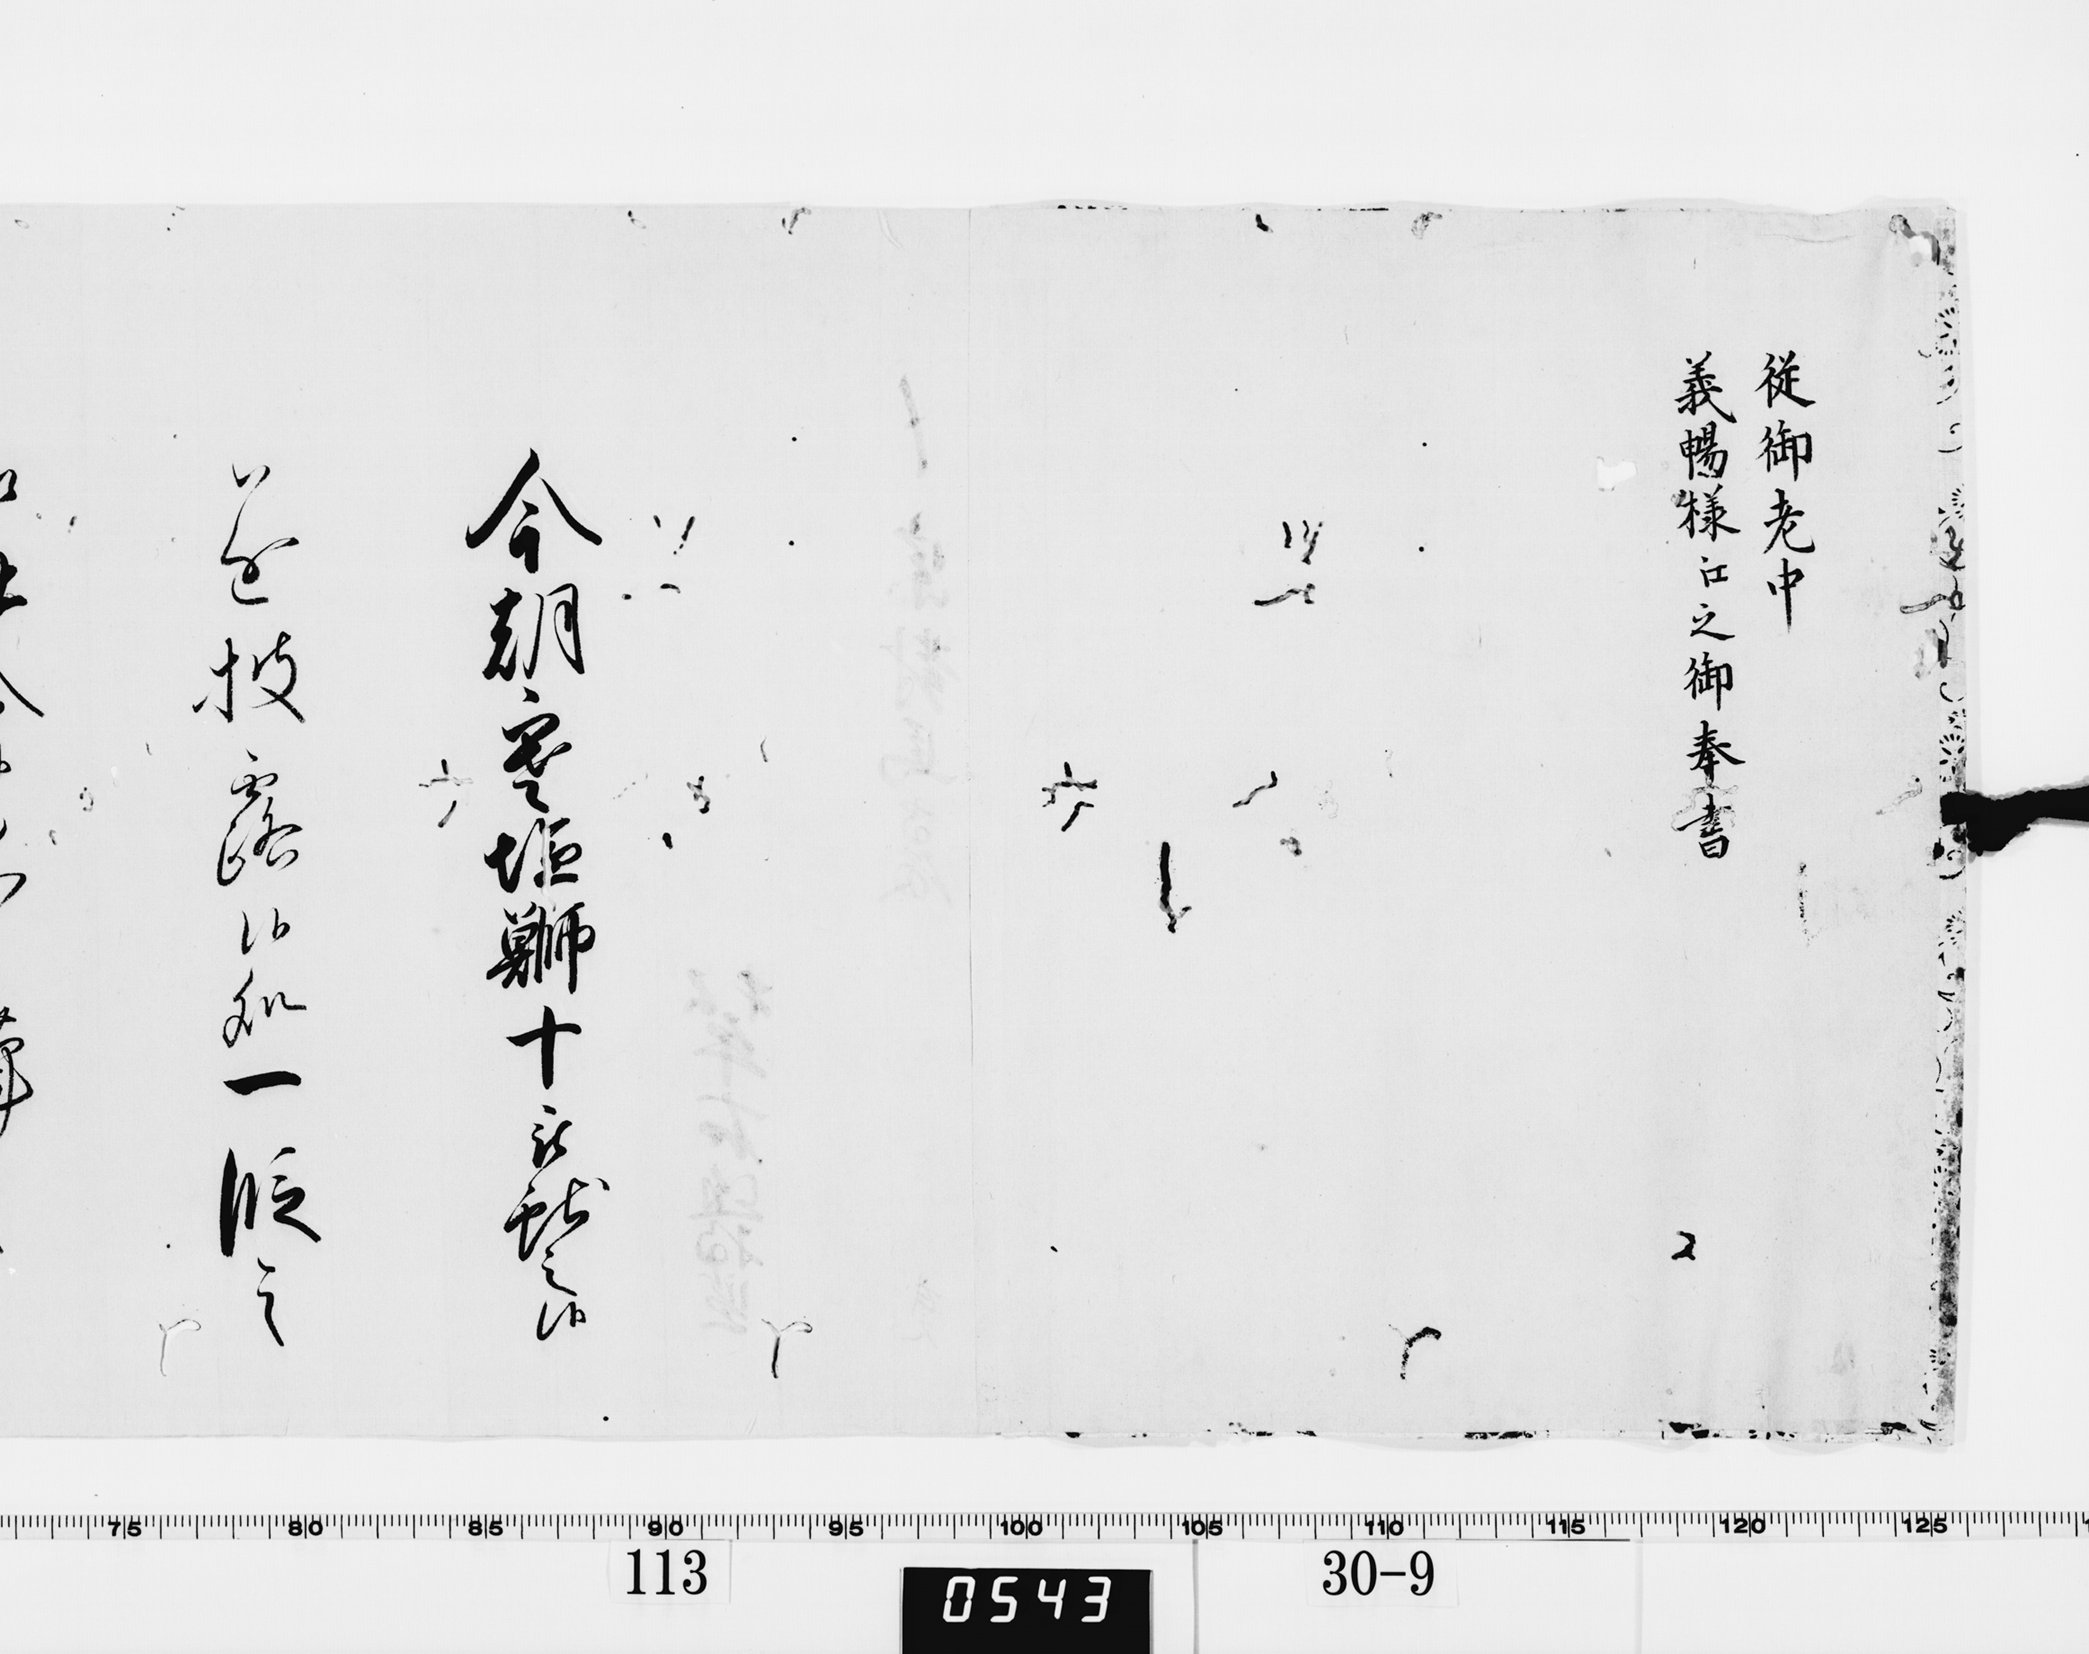 従御老中
義暢様江之御奉書
2
今朝寒塩鰤十被献之候
遂披露候処一段之
75 80 85 90 95 100 105 110 115 120 125
113
0543
30-9